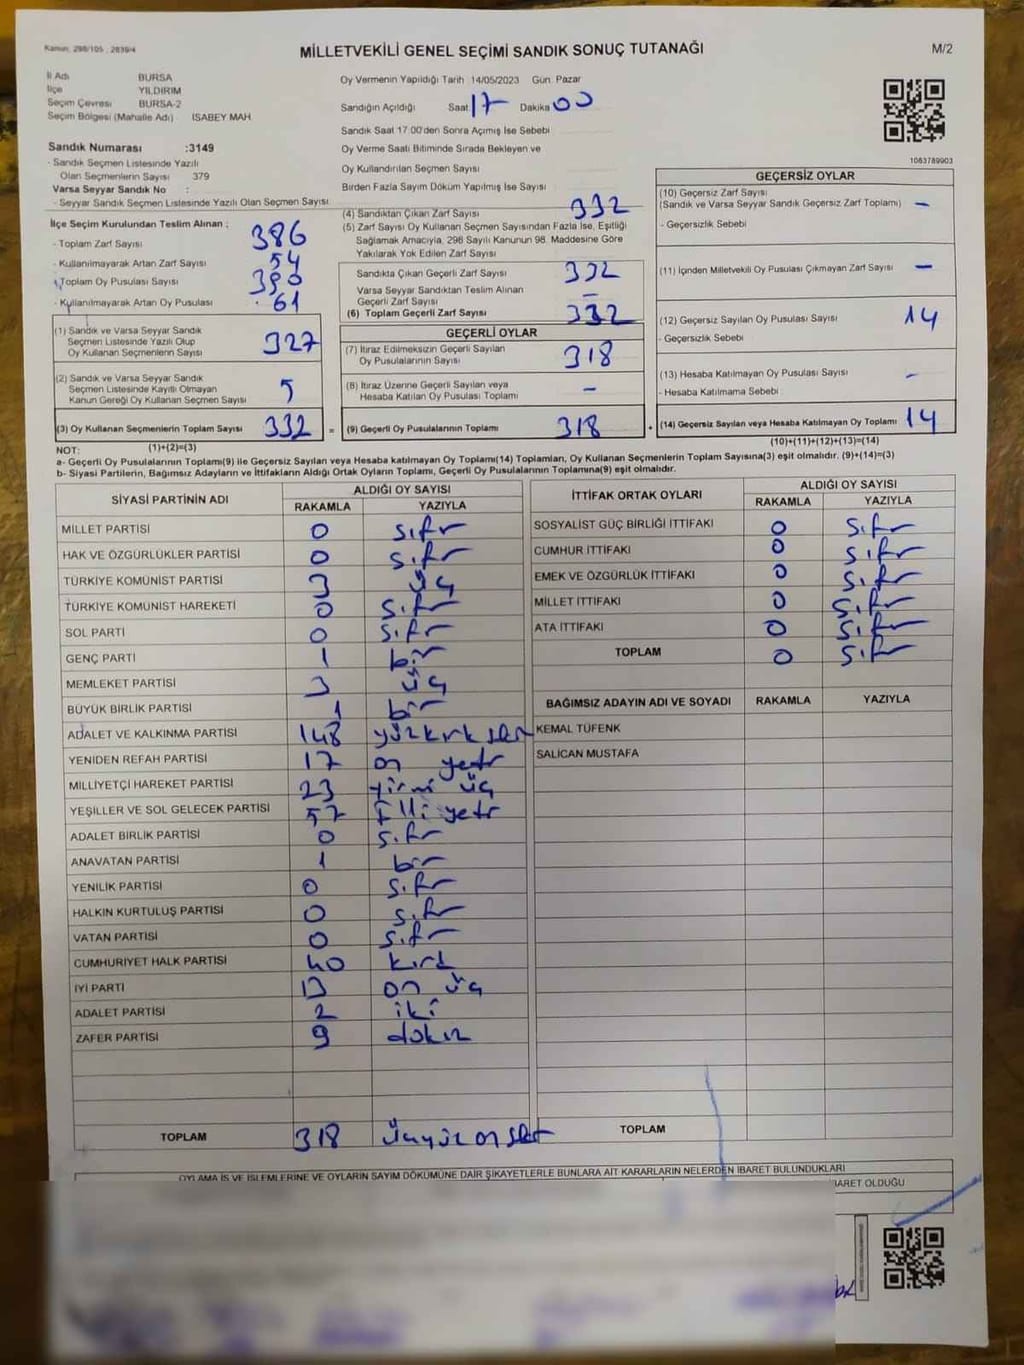 Kanun: 298/105, 2839/4
MİLLETVEKİLİ GENEL SEÇİMİ SANDIK SONUÇ TUTANAĞI
M/2
İl Adı BURSA
İlçe YILDIRIM
Seçim Çevresi BURSA-2
Seçim Bölgesi (Mahalle Adı) ISABEY MAH.
Sandık Numarası :3149
- Sandık Seçmen Listesinde Yazılı
Olan Seçmenlerin Sayısı 379
Varsa Seyyar Sandık No :
- Seyyar Sandık Seçmen Listesinde Yazılı Olan Seçmen Sayısı
Oy Vermenin Yapıldığı Tarih 14/05/2023 Gün Pazar
Sandığın Açıldığı Saat 17 Dakika 00
Sandık Saat 17:00'den Sonra Açımış İse Sebebi
Oy Verme Saati Bitiminde Sırada Bekleyen ve
Oy Kullandırılan Seçmen Sayısı
Birden Fazla Sayım Döküm Yapılmış İse Sayısı
1063789903
İlçe Seçim Kurulundan Teslim Alınan :
- Toplam Zarf Sayısı 386
- Kullanılmayarak Artan Zarf Sayısı 54
- Toplam Oy Pusulası Sayısı 390
- Kullanılmayarak Artan Oy Pusulası 61
(1) Sandık ve Varsa Seyyar Sandık
Seçmen Listesinde Yazılı Olup
Oy Kullanan Seçmenlerin Sayısı 327
(2) Sandık ve Varsa Seyyar Sandık
Seçmen Listesinde Kayıtlı Olmayan
Kanun Gereği Oy Kullanan Seçmen Sayısı 5
(3) Oy Kullanan Seçmenlerin Toplam Sayısı 332 =
(4) Sandıktan Çıkan Zarf Sayısı 332
(5) Zarf Sayısı Oy Kullanan Seçmen Sayısından Fazla İse, Eşitliği
Sağlamak Amacıyla, 298 Sayılı Kanunun 98. Maddesine Göre
Yakılarak Yok Edilen Zarf Sayısı
Sandıkta Çıkan Geçerli Zarf Sayısı 332
Varsa Seyyar Sandıktan Teslim Alınan
Geçerli Zarf Sayısı –
(6) Toplam Geçerli Zarf Sayısı 332
GEÇERLİ OYLAR
(7) İtiraz Edilmeksizin Geçerli Sayılan
Oy Pusulalarının Sayısı 318
(8) İtiraz Üzerine Geçerli Sayılan veya
Hesaba Katılan Oy Pusulası Toplamı –
(9) Geçerli Oy Pusulalarının Toplamı 318 +
GEÇERSİZ OYLAR
(10) Geçersiz Zarf Sayısı
(Sandık ve Varsa Seyyar Sandık Geçersiz Zarf Toplamı) –
- Geçersizlik Sebebi
(11) İçinden Milletvekili Oy Pusulası Çıkmayan Zarf Sayısı –
(12) Geçersiz Sayılan Oy Pusulası Sayısı 14
- Geçersizlik Sebebi
(13) Hesaba Katılmayan Oy Pusulası Sayısı -
- Hesaba Katılmama Sebebi
(14) Geçersiz Sayılan veya Hesaba Katılmayan Oy Toplamı 14
NOT: (1)+(2)=(3) (10)+(11)+(12)+(13)=(14)
a- Geçerli Oy Pusulalarının Toplamı(9) ile Geçersiz Sayılan veya Hesaba katılmayan Oy Toplamı(14) Toplamları, Oy Kullanan Seçmenlerin Toplam Sayısına(3) eşit olmalıdır. (9)+(14)=(3)
b- Siyasi Partilerin, Bağımsız Adayların ve İttifakların Aldığı Ortak Oyların Toplamı, Geçerli Oy Pusulalarının Toplamına(9) eşit olmalıdır.
SİYASİ PARTİNİN ADI ALDIĞI OY SAYISI
RAKAMLA YAZIYLA
MİLLET PARTİSİ 0 sıfır
HAK VE ÖZGÜRLÜKLER PARTİSİ 0 sıfır
TÜRKİYE KOMÜNİST PARTİSİ 3 üç
TÜRKİYE KOMÜNİST HAREKETİ 0 sıfır
SOL PARTİ 0 sıfır
GENÇ PARTİ 1 bir
MEMLEKET PARTİSİ 3 üç
BÜYÜK BİRLİK PARTİSİ 1 bir
ADALET VE KALKINMA PARTİSİ 148 yüzkırk sekiz
YENİDEN REFAH PARTİSİ 17 on yedi
MİLLİYETÇİ HAREKET PARTİSİ 23 yirmi üç
YEŞİLLER VE SOL GELECEK PARTİSİ 57 Elli yedi
ADALET BİRLİK PARTİSİ 0 sıfır
ANAVATAN PARTİSİ 1 bir
YENİLİK PARTİSİ 0 sıfır
HALKIN KURTULUŞ PARTİSİ 0 sıfır
VATAN PARTİSİ 0 sıfır
CUMHURİYET HALK PARTİSİ 40 kırk
İYİ PARTİ 13 on üç
ADALET PARTİSİ 2 iki
ZAFER PARTİSİ 9 dokuz
TOPLAM 318 üçyüz on sekiz
İTTİFAK ORTAK OYLARI ALDIĞI OY SAYISI
RAKAMLA YAZIYLA
SOSYALİST GÜÇ BİRLİĞİ İTTİFAKI 0 sıfır
CUMHUR İTTİFAKI 0 sıfır
EMEK VE ÖZGÜRLÜK İTTİFAKI 0 sıfır
MİLLET İTTİFAKI 0 sıfır
ATA İTTİFAKI 0 sıfır
TOPLAM 0 sıfır
BAĞIMSIZ ADAYIN ADI VE SOYADI RAKAMLA YAZIYLA
KEMAL TÜFENK
SALİCAN MUSTAFA
TOPLAM
OYLAMA İŞ VE İŞLEMLERİNE VE OYLARIN SAYIM DÖKÜMÜNE DAİR ŞİKAYETLERLE BUNLARA AİT KARARLARIN NELERDEN İBARET BULUNDUKLARI
BARET OLDUĞU